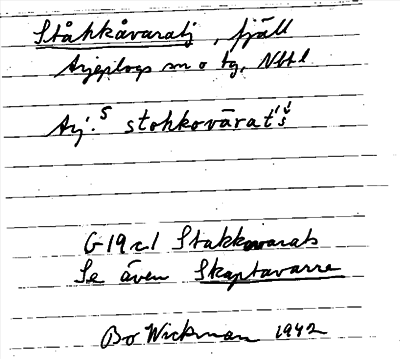 Ståhkåvaratj, fjäll
Arjeplogs sn o tg, Nbtl
Arj. S stohkovārat́š́
G 19 r1 Stakkavarats
Se även Skaptavarre
Bo Wickman 1942